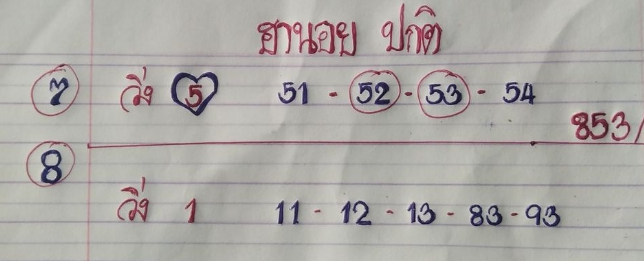 ฮานอย ปกติ
7 วิ่ง 5 51 - 52 - 53 - 54
853/
8
วิ่ง 1 11 - 12 - 13 - 83 - 93